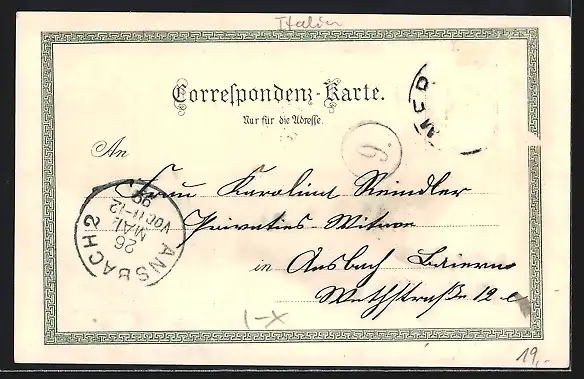 Italien
Correspondenz-Karte.
Nur für die Adresse.
MED
6
An
Frau Karoline Reindler
Privatiers-Witwe
in Ansbach Baiern
12 c
ANSBACH 2
26
MAI
VOR 11-12
99
1-X
19,-